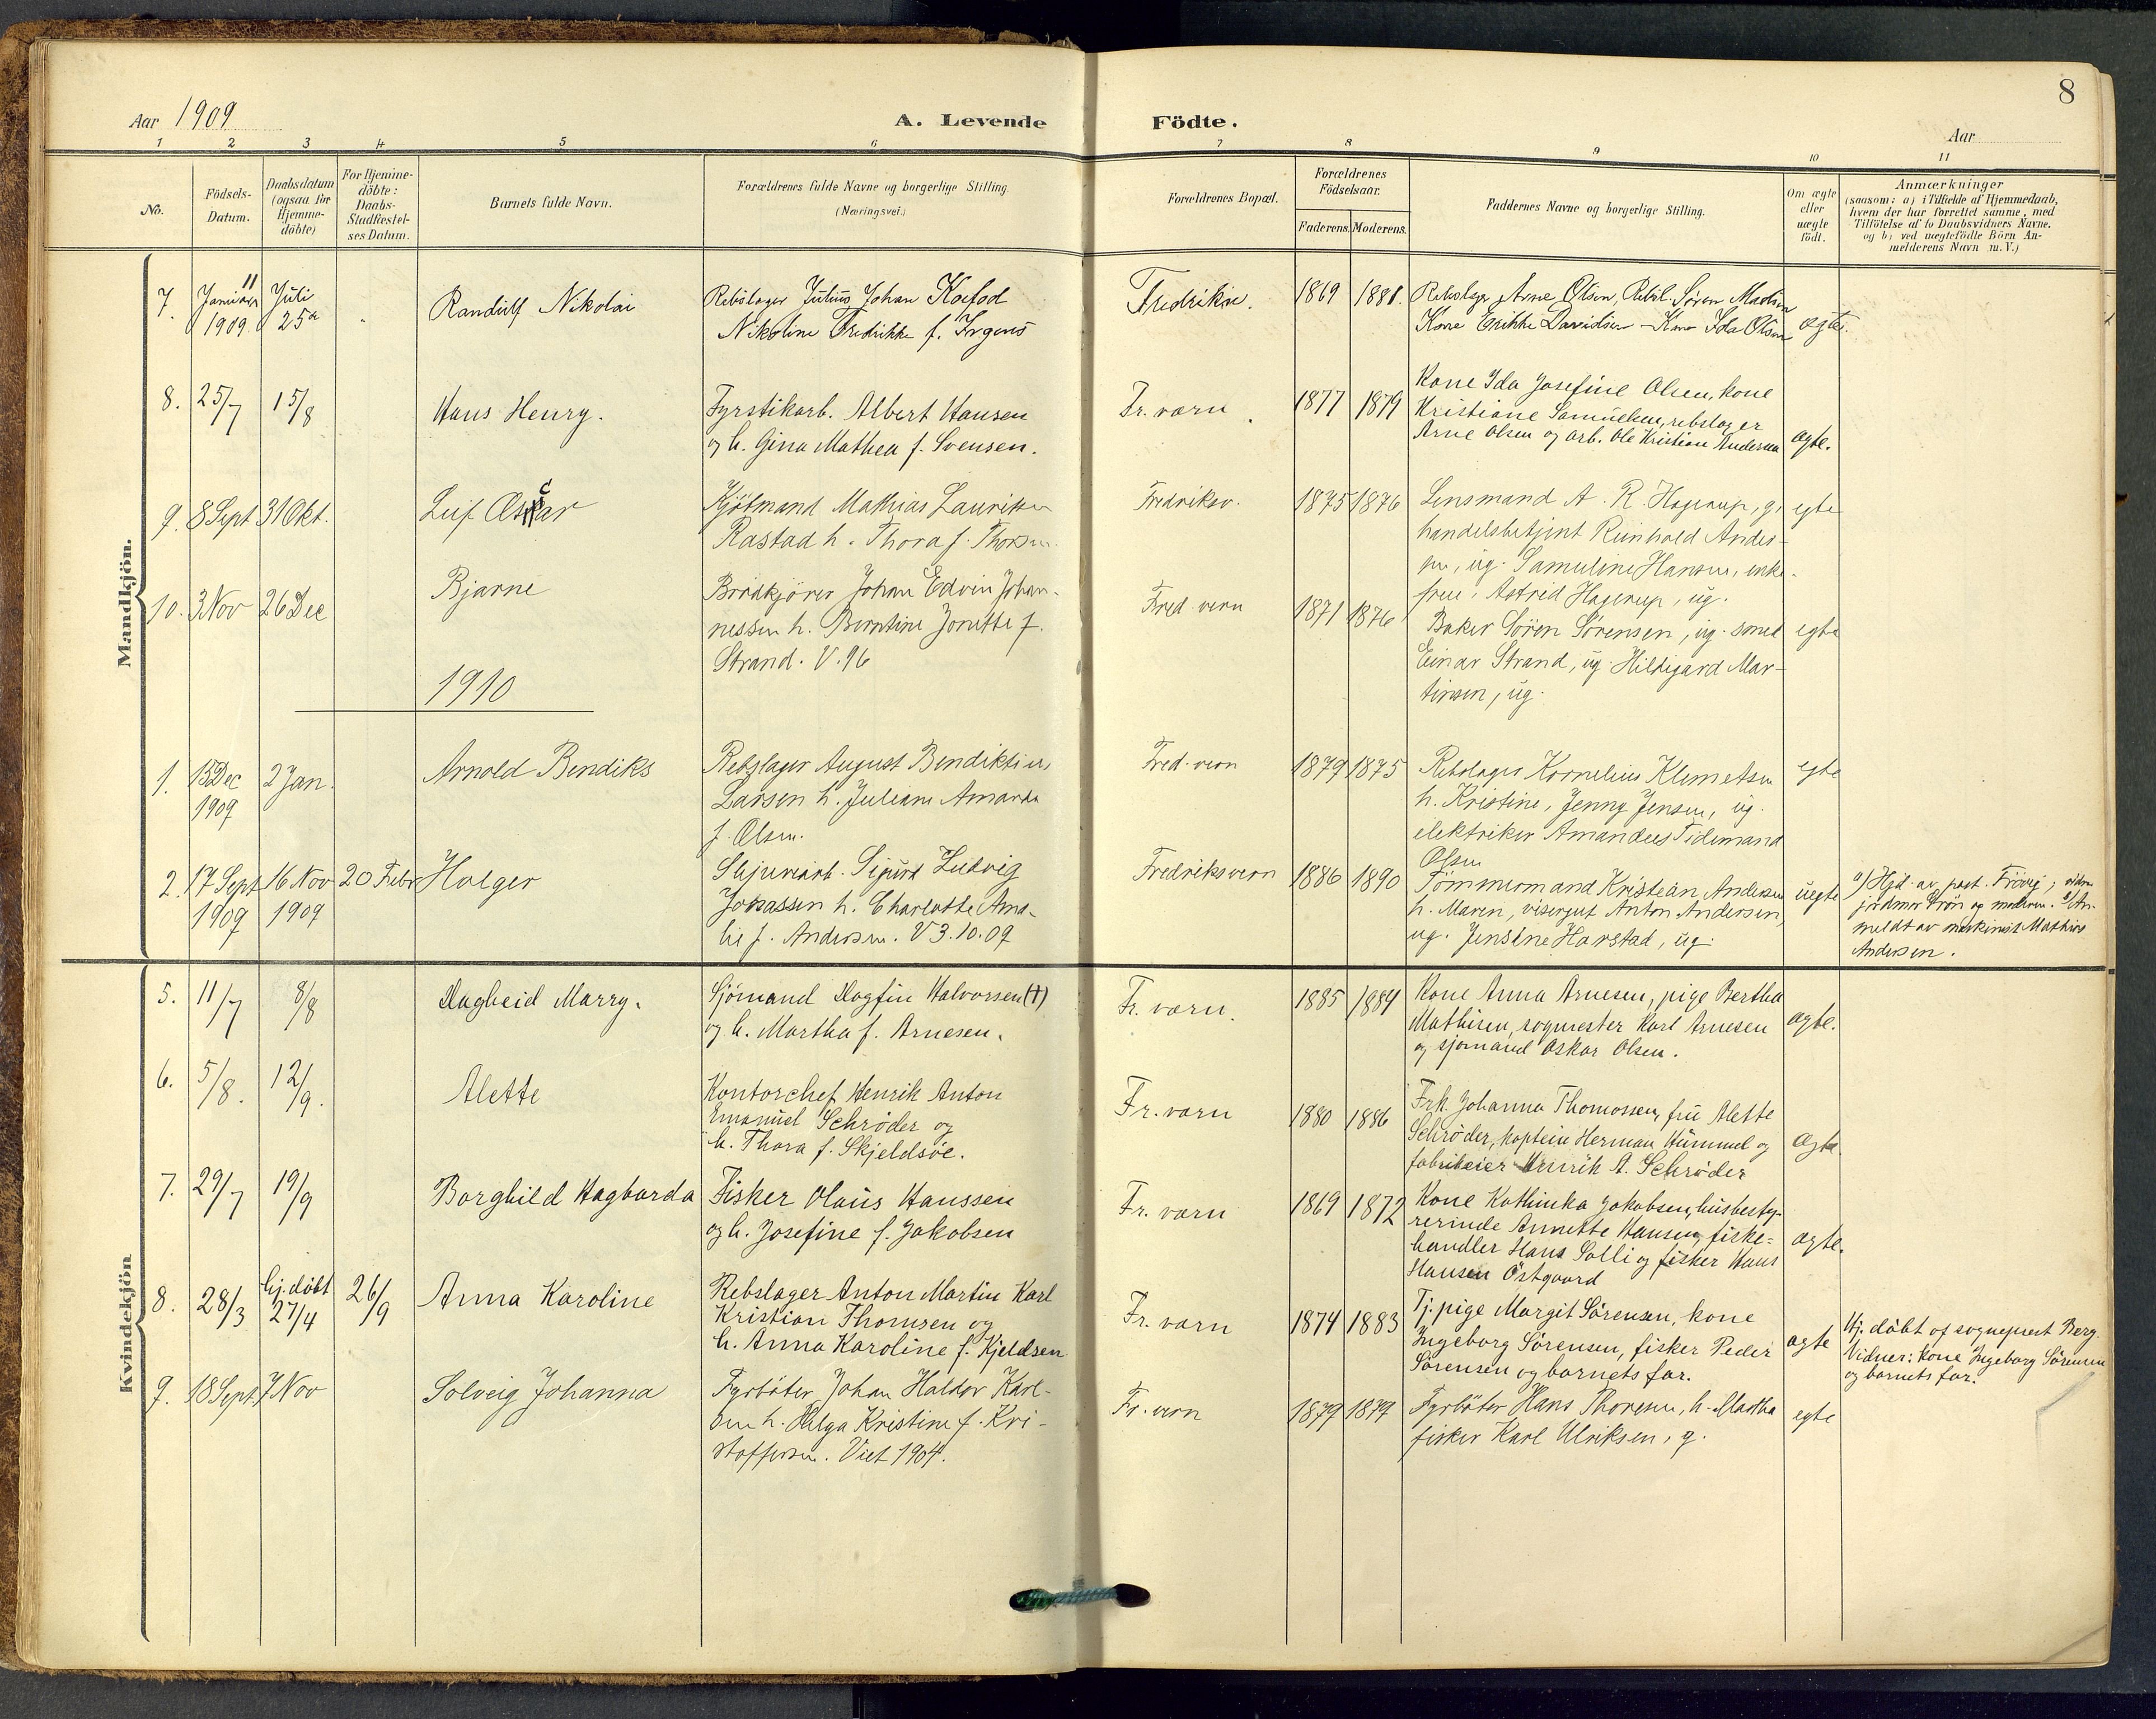 8
Aar 1909
A. Levende Födte.
Aar
1 2 3 4 5 6 7 8 9 10 11
No.
Födsels-
Datum.
Daabsdatum
(ogsaa for
Hjemme-
döbte)
For Hjemme-
döbte:
Daabs-
Stadfæstel-
ses Datum.
Barnets fulde Navn.
Forældrenes fulde Navne og borgerlige Stilling.
(Næringsvei.)
Forældrenes Bopæl.
Forældrenes
Födselsaar.
Faderens. Moderens.
Faddernes Navne og borgerlige Stilling.
Om ægte
eller
uægte
födt.
Anmærkninger
(saasom: a) i Tilfælde af Hjemmedaab,
hvem der har forrettet samme, med
Tilföielse af to Daabsvidners Navne.
og b) ved uægtefödte Börn An-
melderens Navn m. V.)
Mandkjön.
7.
11
Januar
1909.
Juli
25a
Randulf Nikolai
Rebslager Julius Johan Kofod
Nikoline Fredrikke f. Irgens
Fredriksv.
1869 1881.
Rebslager Arne Olsen, Rebsl. Søren Madsen
Kone Erikke Davidsen - Kone Ida Olsen
ægte.
8. 25/7 15/8
Hans Henry.
Fyrstikarb. Albert Hansen
og h. Gina Mathea f. Svensen.
Fr. værn
1877 1879
Kone Ida Josefine Olsen, kone
Kristiane Samuelsen, rebslager
Arne Olsen og arb. Ole Kristian Andersen
ægte.
9. 8 Sept 31 Okt.
Leif Oscar
Kjötmand Mathias Lauritsen
Rastad h. Thora f. Thorsen.
Fredriksv.
1875 1876
Lensmand A. R. Hagerup, g.
handelsbetjent Reinhold Ander-
sen, ug. Samuline Hansen, enke-
frue, Astrid Hagerup, ug.
egte
10. 3 Nov 26 Dec
Bjarne
Brödkjörer Johan Edvin Johan-
nessen h. Berntine Jonette f.
Strand. V. 96
Fred. vern
1871 1876
Baker Sören Sörensen, ug. smed
Einar Strand, ug. Hildegard Mar-
tinsen, ug.
egte
1910
1. 13 Dec
1909
2 Jan.
Arnold Bendiks
Rebslager August Bendiktius
Larsen h. Juliane Amanda
f. Olsen.
Fred. vern
1879 1875
Rebslager Kornelius Klemetsen
h. Kristine, Jenny Jensen, ug.
elektriker Amandus Tidemand
Olsen
egte
2. 17 Sept
1909
16 Nov
1909
20 Febr
Holger
Skjureiarb. Sigurd Ludvig
Jonassen h. Charlotte Ama-
lie f. Andersen. V 3.10.09
Fredriksvern
1886 1890
Tömmermand Kristian Andersen
h. Maren, visergut Anton Andersen,
ug. Jensine Harstad, ug.
uegte
a) Hjd. av past. Frövig; vidner
jordmor Brön og moderen. b) An-
meldt av maskinist Mathias
Andersen.
Kvindekjön
5. 11/7 8/8
Dagheid Marry.
Sjömand Dagfin Halvorsen (†)
og h. Martha f. Arnesen.
Fr. værn.
1885 1884
Kone Anna Arnesen, pige Bertha
Mathisen, sagmester Karl Arnesen
og sjömand Oskar Olsen.
ægte.
6. 5/8. 12/9.
Alette
Kontorchef Henrik Anton
Emanuel Schröder og
h. Thora f. Skjeldsöe.
Fr. værn
1880 1886
Frk. Johanna Thomassen, fru Alette
Schröder, kaptein Herman Hummel og
fabrikeier Henrik A. Schröder
Ægte.
7. 29/7 19/9
Borghild Hagbarda
Fisker Olaus Hanssen
og h. Josefine f. Jakobsen
Fr. værn
1869 1872
Kone Kathinka Jakobsen, husbesty-
rerinde Annette Hansen, fiske-
handler Hans Solli og fisker Hans
Hansen Östgaard
ægte.
8. 28/3
hj. döbt
27/4
26/9
Anna Karoline
Rebslager Anton Martin Karl
Kristian Thomsen og
h. Anna Karoline f. Kjeldsen
Fr. værn
1874 1883
Tj. pige Margit Sörensen, kone
Ingeborg Sörensen, fisker Peder
Sörensen og barnets far.
ægte
Hj. döbt af sogneprest Berg.
Vidner: Kone Ingeborg Sörensen
og barnets far.
9. 18 Sept. 7 Nov
Solveig Johanna
Fyrböter Johan Haldor Karl-
sen h. Helga Kristine f. Kri-
stoffersen. Viet 1904.
Fr. vern
1879 1879
Fyrböter Hans Thoresen, h. Martha
fisker Karl Ulriksen, g.
egte